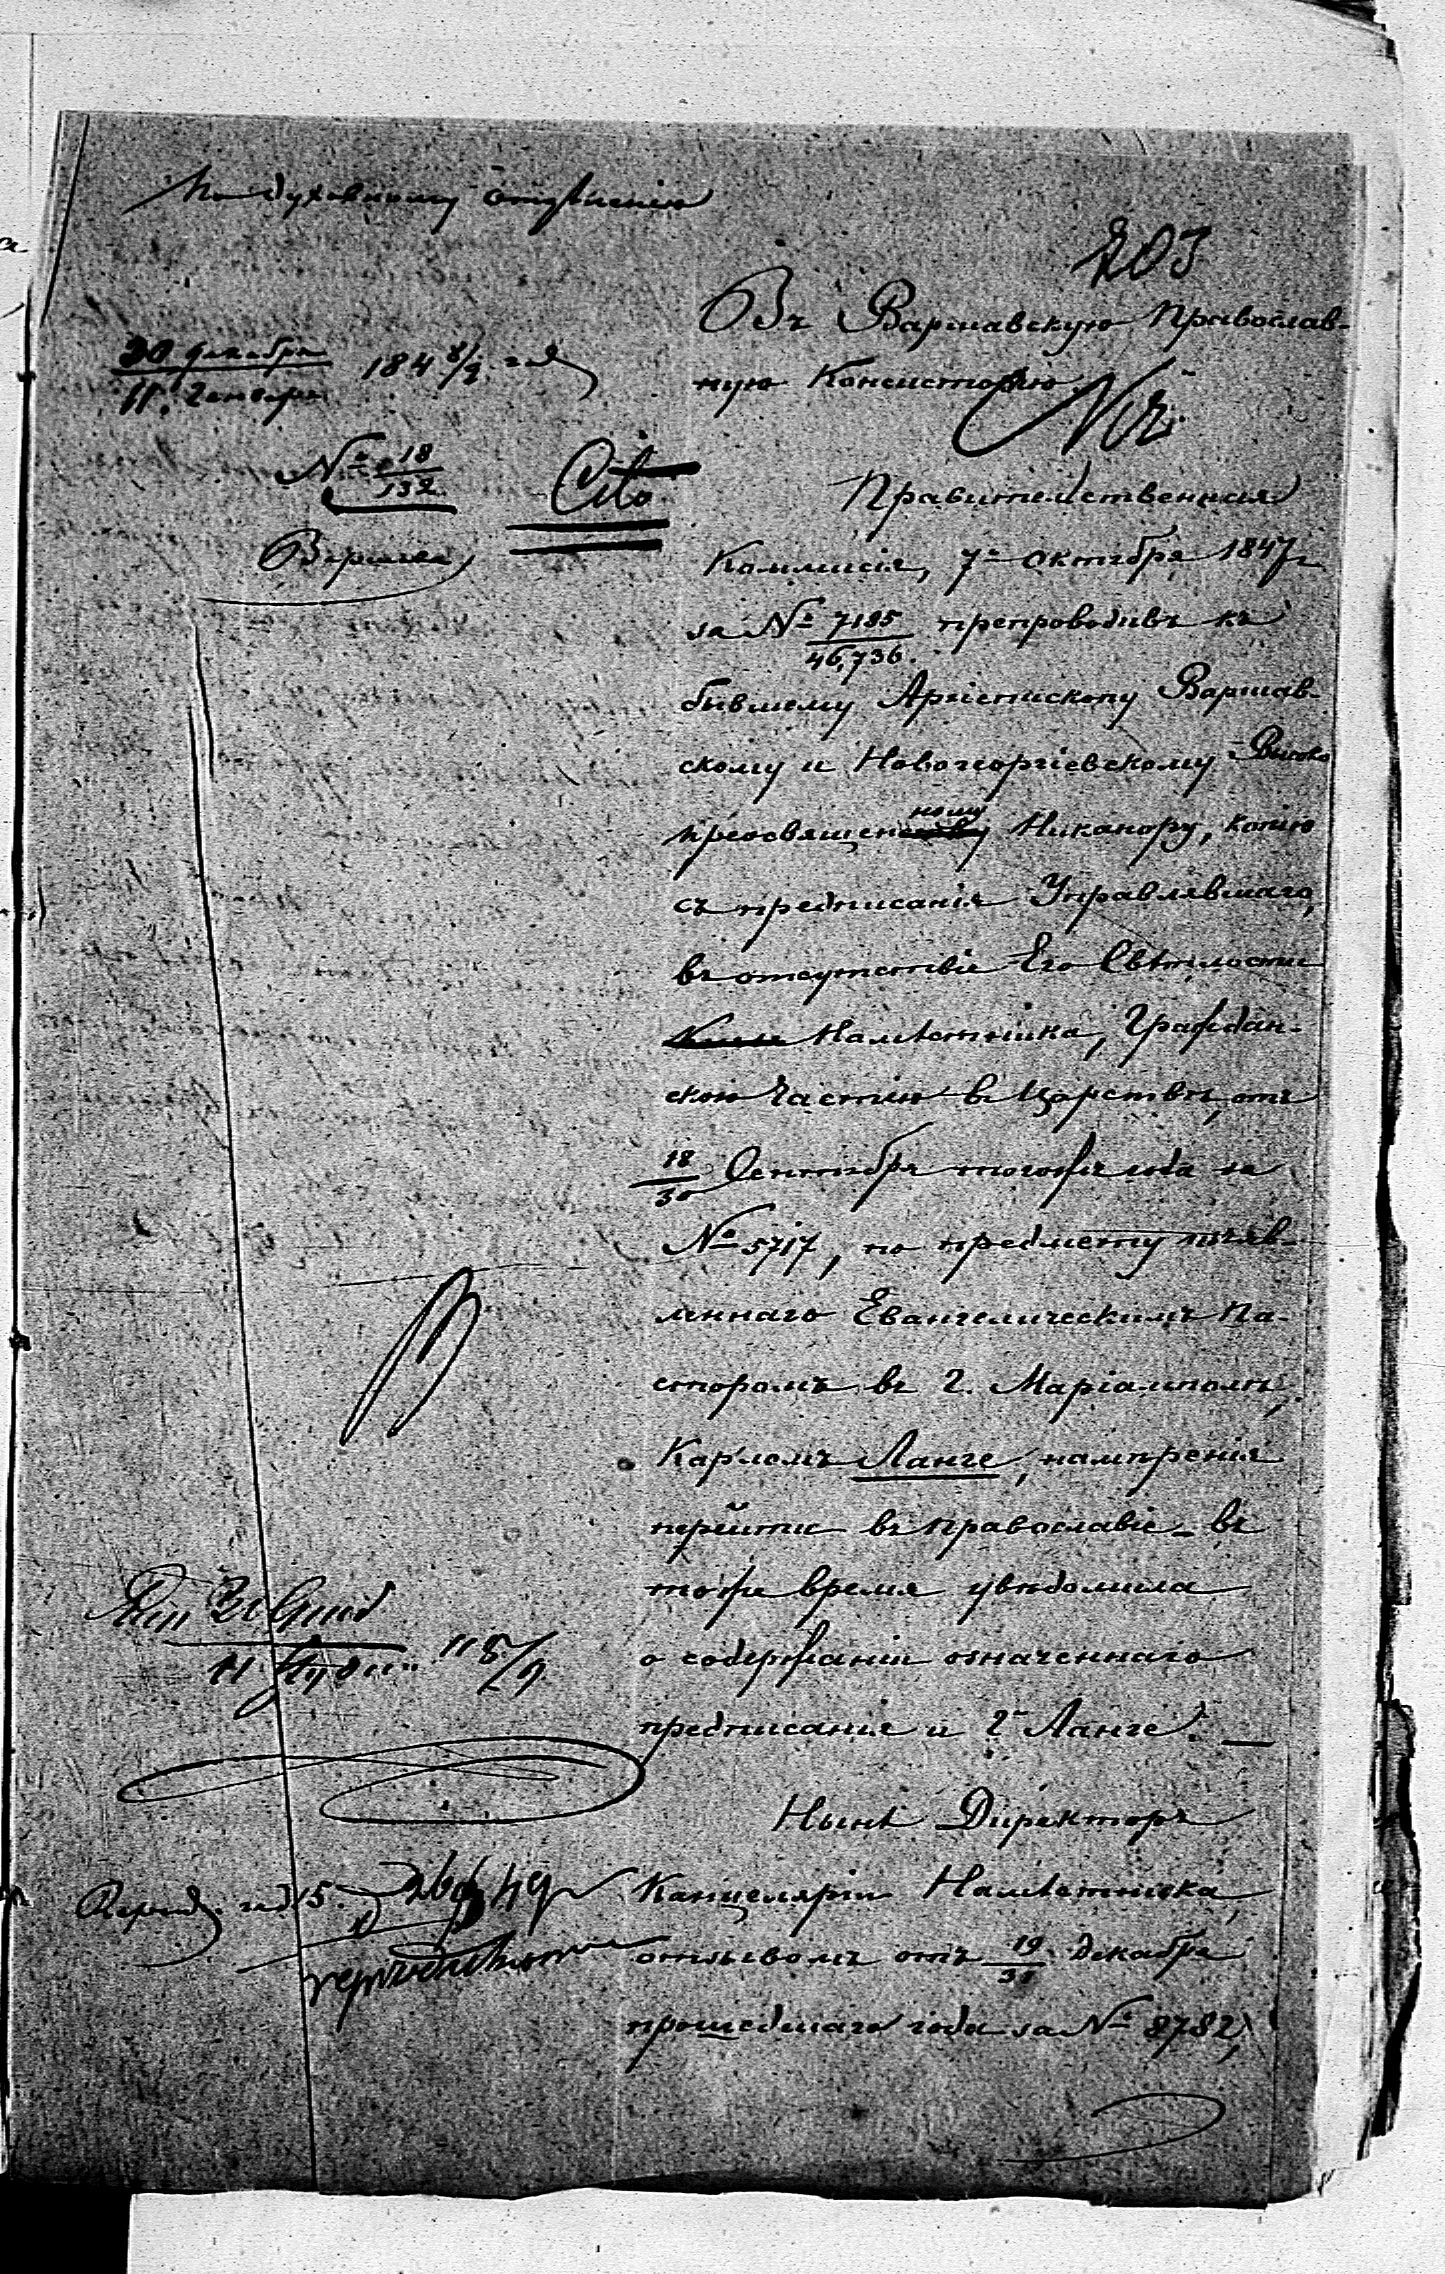 По духовному отдѣленію
203
Въ Варшавскую Православ-
ную Консисторію
30 декабря
11 Генваря 184 8/9 года
№ 18
132
Cito
Варшава
Правительственная
Коммисія, 7 Октября 1847 г.
за № 7185
46,736. препроводивъ къ
бывшему Архіепископу Варшав-
скому и Новогеоргіевскому Высоко
преосвященному Никанору, копію
съ предписанія Управлявшаго,
въ отсутствіе Его Свѣтлости
Намѣстника, Граждан-
скою Частію въ Царствѣ, отъ
18
30 Сентября тогоже года за
№ 5717, по предмету изъяв-
леннаго Евангелическимъ Па-
сторомъ въ г. Маріамполѣ,
Карломъ Ланге, намѣренія
перейти въ православіе – въ
тоже время увѣдомила
о содержаніи означеннаго
предписанія и Гна Ланге. —
Нынѣ Директоръ
Канцеляріи Намѣстника,
отзывомъ отъ 19
31 декабря
прошедшаго года за № 8782,